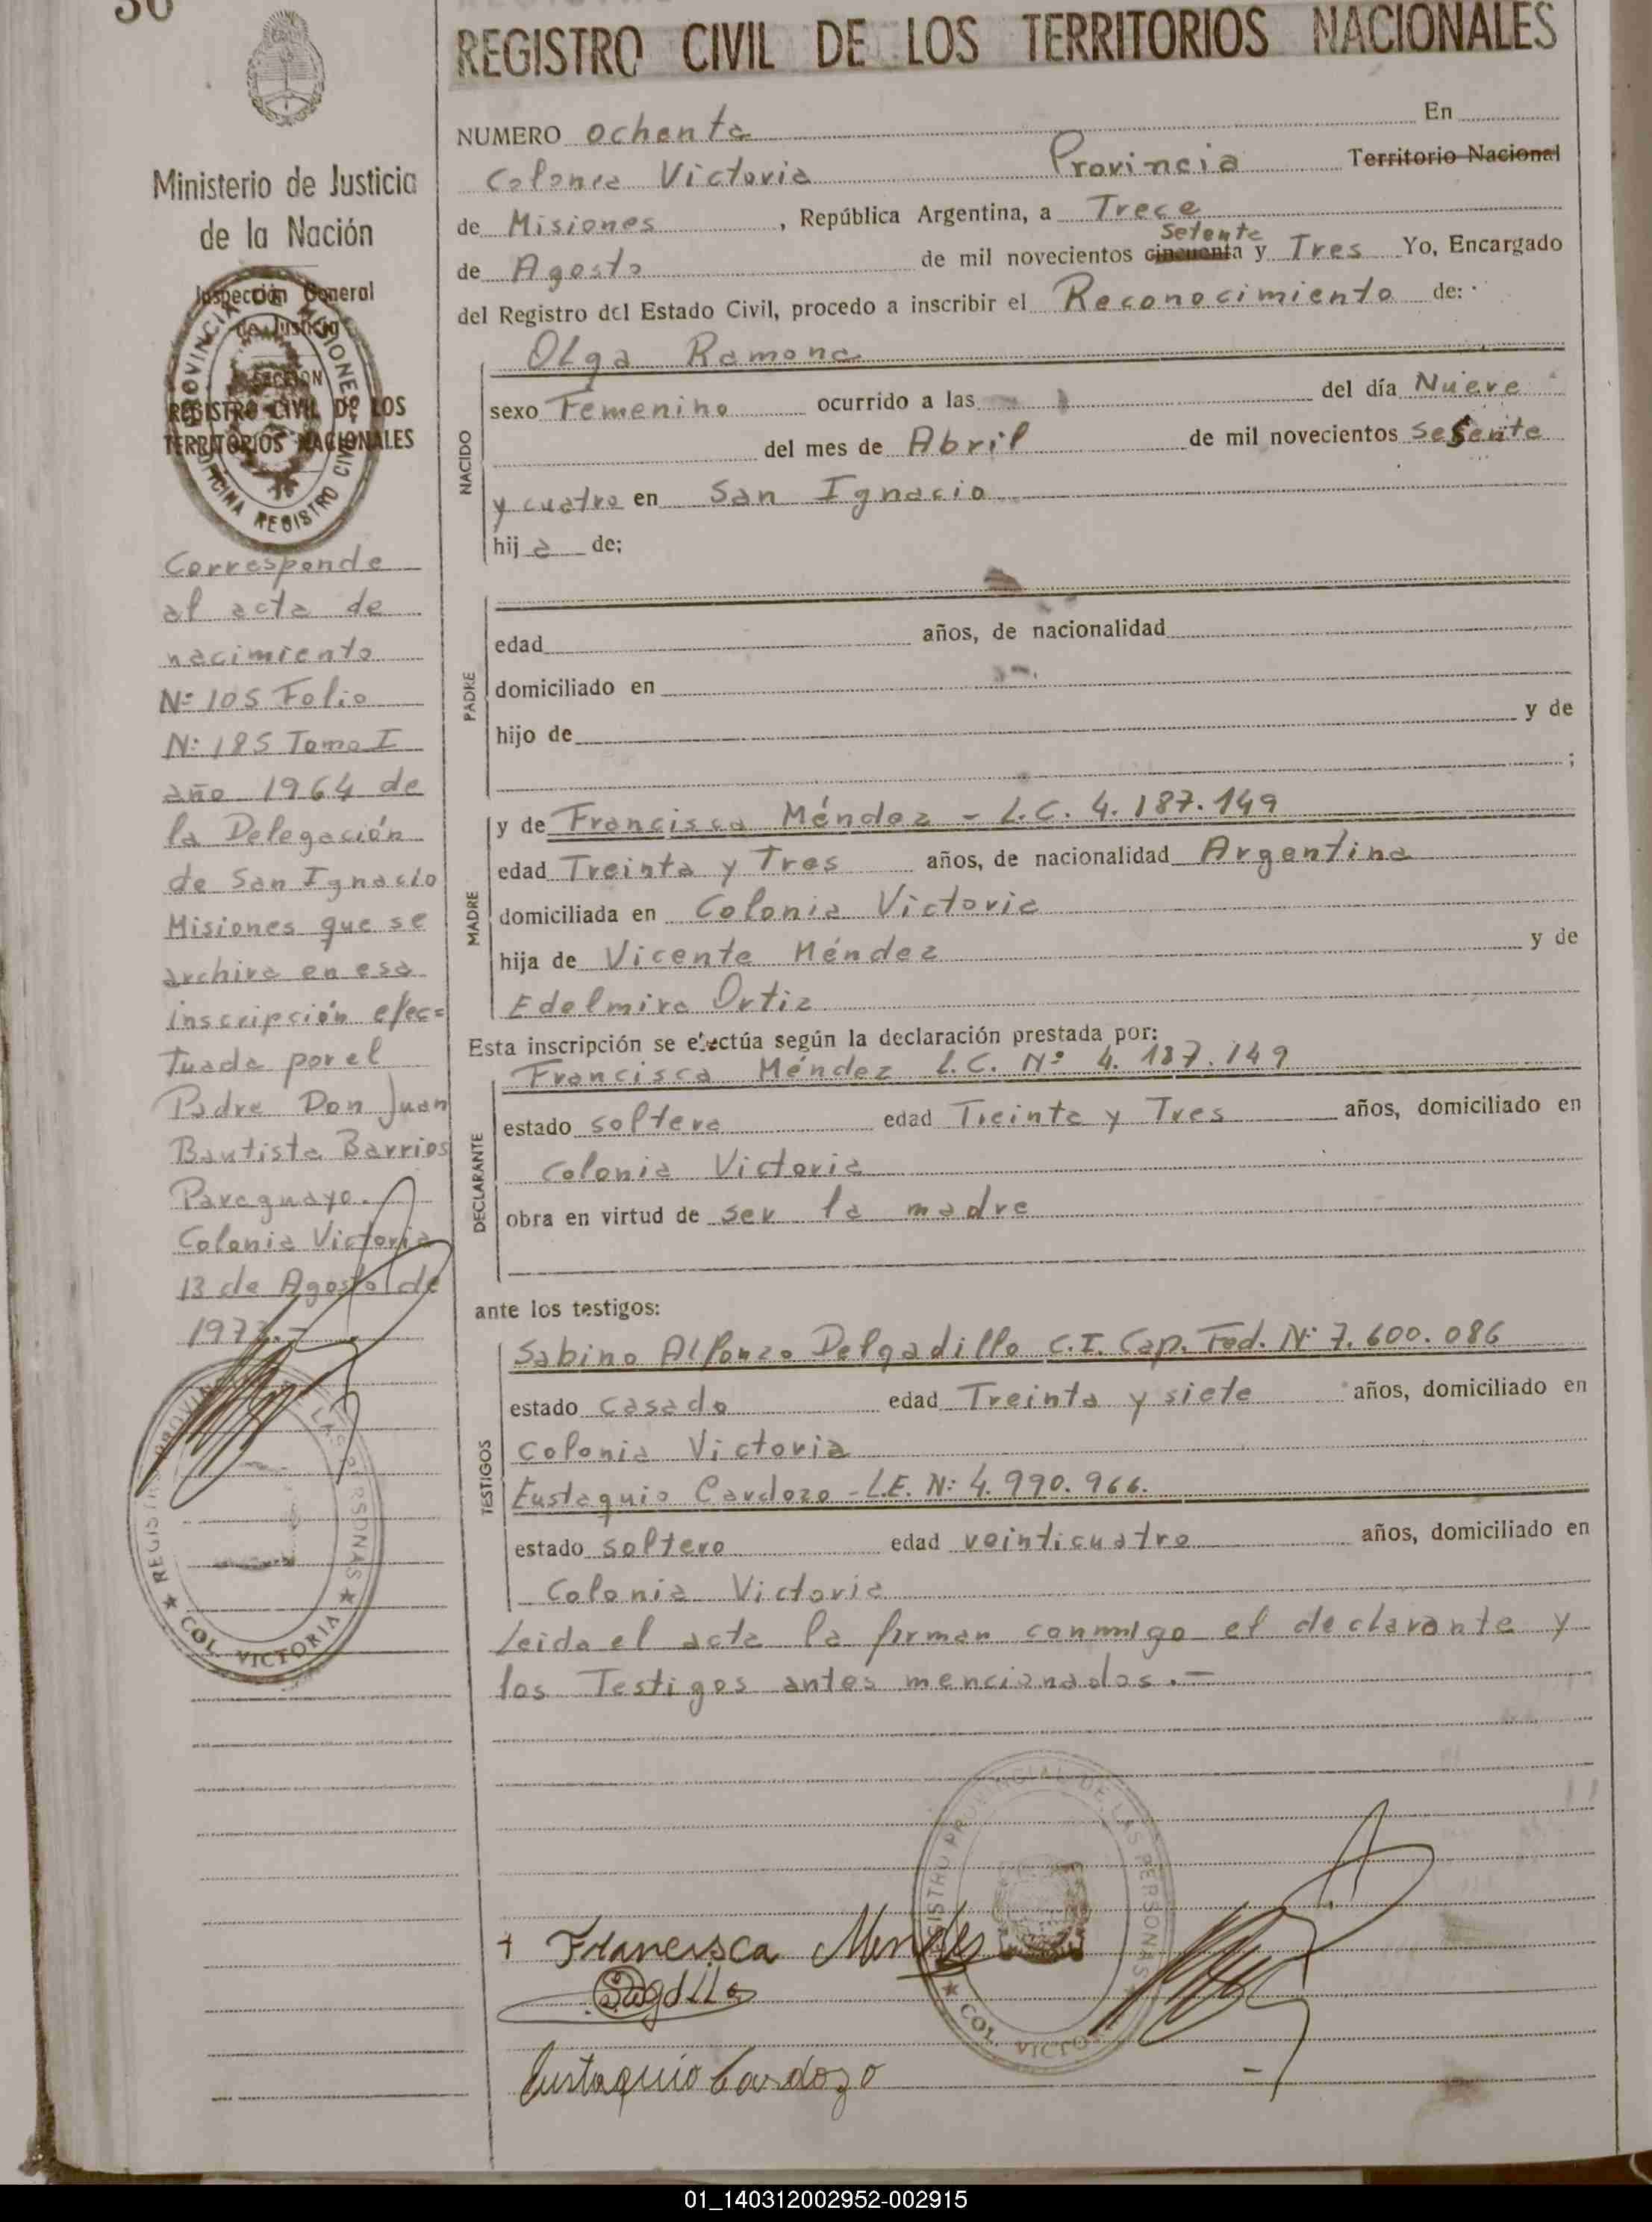 REGISTRO CIVIL DE LOS TERRITORIOS NACIONALES
Ministerio de Justicia
de la Nación
Inspección General
de Justicia
SECCION
REGISTRO CIVIL DE LOS
TERRITORIOS NACIONALES
PROVINCIA MISIONES
OFICINA REGISTRO CIVIL
Corresponde
al acta de
nacimiento
Nº 105 Folio
Nº 185 Tomo I
año 1964 de
la Delegación
de San Ignacio
Misiones que se
archiva en esa
inscripción efec=
tuada por el
Padre Don Juan
Bautista Barrios
Paraguayo.
Colonia Victoria
13 de Agosto de
1973.-
REGISTRO PROVINCIAL DE LAS PERSONAS
★ COL. VICTORIA ★
NUMERO ochenta En
Colonia Victoria Provincia Territorio Nacional
de Misiones, República Argentina, a Trece
Setenta
de Agosto de mil novecientos cincuenta y Tres Yo, Encargado
del Registro del Estado Civil, procedo a inscribir el Reconocimiento de:
NACIDO
Olga Ramona
sexo Femenino ocurrido a las del día Nueve
del mes de Abril de mil novecientos sesenta
y cuatro en San Ignacio
hija de;
PADRE
edad años, de nacionalidad
domiciliado en
hijo de y de
;
MADRE
y de Francisca Méndez - L.C. 4.187.149
edad Treinta y Tres años, de nacionalidad Argentina
domiciliada en Colonia Victoria
hija de Vicente Méndez y de
Edelmira Ortiz
Esta inscripción se efectúa según la declaración prestada por:
DECLARANTE
Francisca Méndez L.C. Nº 4.187.149
estado soltera edad Treinta y Tres años, domiciliado en
Colonia Victoria
obra en virtud de ser la madre
ante los testigos:
TESTIGOS
Sabino Alfonzo Delgadillo C.I. Cap. Fed. Nº 7.600.086
estado casado edad Treinta y siete años, domiciliado en
Colonia Victoria
Eustaquio Cardozo - L.E. Nº 4.990.966.
estado soltero edad veinticuatro años, domiciliado en
Colonia Victoria
Leida el acta la firman conmigo el declarante y
los Testigos antes mencionados.-
REGISTRO PROVINCIAL DE LAS PERSONAS
★ COL. VICTORIA
+ Francisca Mendes
Eustaquio Cardozo
01_140312002952-002915